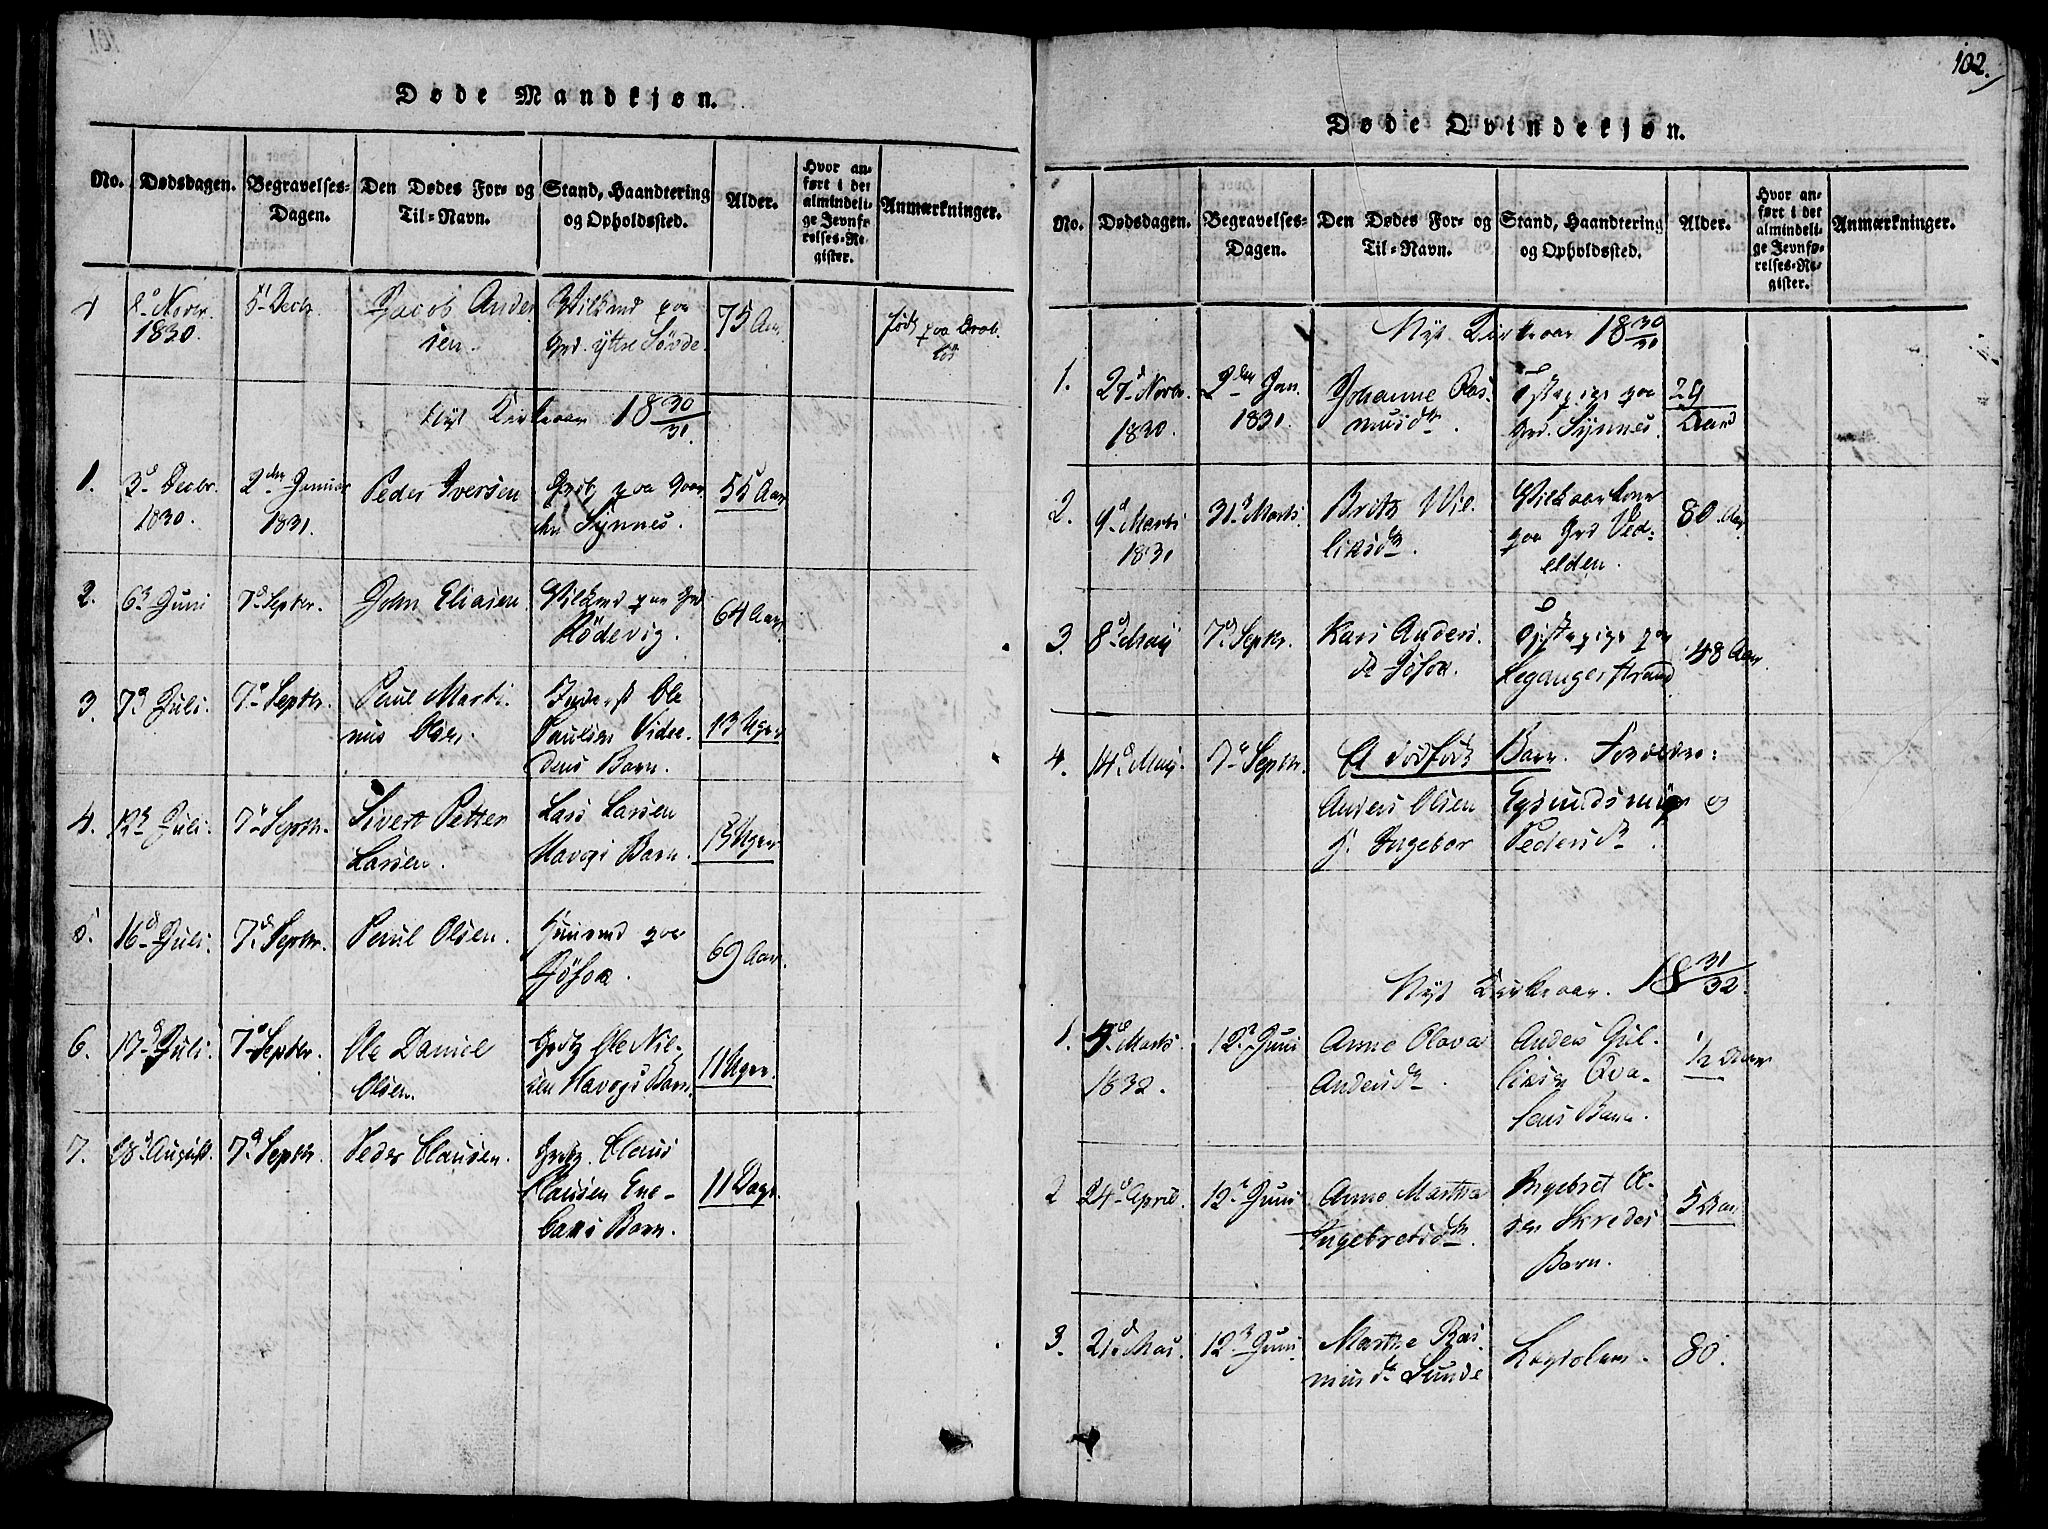 Døde Mandkjøn.
No.
Dødsdagen.
Begravelses-
Dagen.
Den Dødes For- og
Til-Navn.
Stand, Haandtering
og Opholdssted.
Alder.
Hvor an-
ført i det
almindeli-
ge Jevnfø-
relses-Re-
gister.
Anmærkninger.
1830.
5 Decbr.
Jacob Ander
sen.
Vilkmd paa
Grd. yttre Søvde.
75 Aar
född paa
Nyt Kirkeaar 18 30/31.
1.
3d Decbr.
1830.
2den Januar
1831.
Peder Iversen
paa Gaar
den Synnes.
55 Aar
2.
6d Juni
7d Septbr.
John Eliasen
Vilkmd paa Grd
Rödevig.
64 Aar
3.
7d Juli.
7d Septbr.
Paul Marti-
nus Olsen.
Inderst Ole
Paulsen
dens Barn.
13 Uger
4.
12d Juli.
7d Septbr.
Sivert Petter
Larsen.
Lars Larsen
Havogs Barn.
13 Uger
5.
16d Juli.
7d Septbr.
Paul Olsen.
Huusmd paa
69 Aar.
6.
17d Juli.
7d Septbr.
Ole Daniel
Olsen.
Grdbr. Ole Niel-
sen Havogs Barn.
11 Uger.
7.
28d August.
7d Septbr.
Peder Clausen.
Grdbr. Claus
Clausen Ene-
Barn.
11 Dage.
102.
Døde Qvindekjøn.
No.
Dødsdagen.
Begravelses-
Dagen.
Den Dødes For- og
Til-Navn.
Stand, Haandtering
og Opholdssted.
Alder.
Hvor an-
ført i det
almindeli-
ge Jevnfø-
relses-Re-
gister.
Anmærkninger.
Nyt Kirkeaar 18 30/31
1.
27d Novbr.
1830.
2den Jan.
1831.
Johanne Ras-
musdtr.
paa
Grd. Synnes.
29
Aar
2.
9d Marts
1831
31d Marts.
Brite Wil-
liksdtr.
Vilkaarkone
paa Grd Ved-
elden.
80 Aar
3.
8d Maij
7d Septbr.
Kari Anders
paa
Legangerstrand
48 Aar
4.
14d Maij.
7d Septbr.
Et dødfødt Barn. Forældre:
Anders Olsen og
H. Ingebor Pedersdtr.
Nyt Kirkeaar. 18 31/32.
1.
Marts
1832.
12d Juni
Anne Olava
Andersdtr.
Anders Gul-
liksen Qva-
Barn.
1/2 Aar
2
24d April.
12d Juni
Anne Martha
Ingebretsdtr.
Ingebret Ol-
sen Skredes
Barn.
5 Aar
3.
21d Mai.
12d Juni
Marthe Ras-
musdtr. Sunde
Lægdslem.
80.